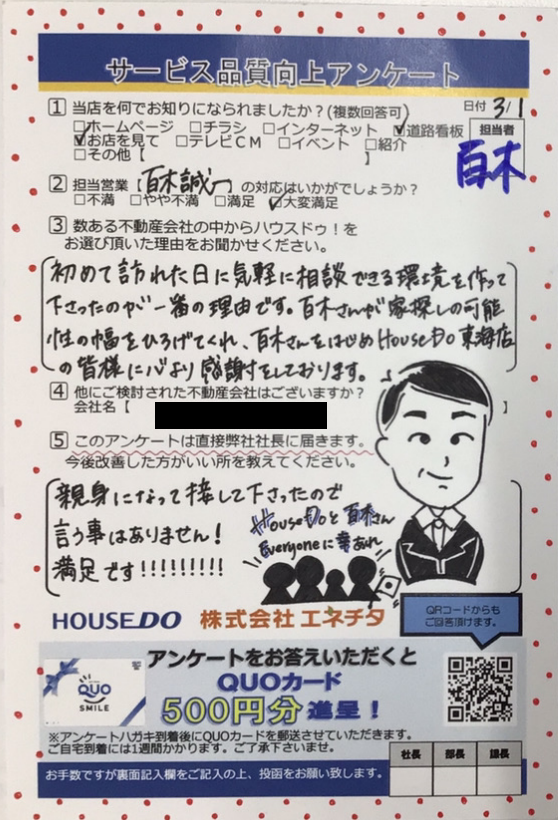 サービス品質向上アンケート
1 当店を何でお知りになられましたか？(複数回答可)
日付 3/1
□ホームページ □チラシ □インターネット ☑道路看板
担当者
☑お店を見て □テレビCM □イベント □紹介
百木
□その他【 】
2 担当営業【百木誠一】の対応はいかがでしょうか？
□不満 □やや不満 □満足 ☑大変満足
3 数ある不動産会社の中からハウスドゥ！を
お選び頂いた理由をお聞かせください。
初めて訪れた日に気軽に相談できる環境を作って
下さったのが一番の理由です。百木さんが家探しの可能
性の幅をひろげてくれ、百木さんをはじめHouseDo東海店
の皆様に心より感謝をしております。
4 他にご検討された不動産会社はございますか？
会社名【 】
5 このアンケートは直接弊社社長に届きます。
今後改善した方がいい所を教えてください。
親身になって接して下さったので
言う事はありません！
満足です!!!!!!!!!
HouseDoと百木さん
Everyoneに幸あれ
HOUSEDO 株式会社 エネチタ
QRコードからも
ご回答頂けます。
アンケートをお答えいただくと
QUOカード
500円分 進呈！
QUO
SMILE
※アンケートハガキ到着後にQUOカードを郵送させていただきます。
ご自宅到着には1週間かかります。ご了承下さいませ。
社長 部長 課長
お手数ですが裏面記入欄をご記入の上、投函をお願い致します。